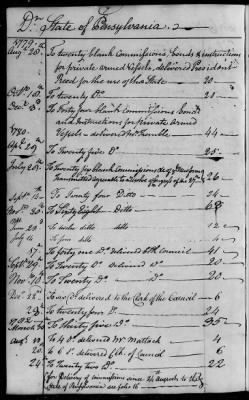 Dr. State of Pensylvania.
1779
Aug 20. To twenty blank Commissions, bonds & instructions
for private armed Vessels, delivered President
Reed for the use of the State 20
Octr. 10. To twenty Do. 20
Decr. 3. To forty four blank Commissions Bonds
and Instructions for private armed
Vessels - delivered Mr. Trumble 44
1780.
Apl. 29 To Twenty five Do. 25
July 20 To Twenty six blank Commissions
transmitted 26
Sept. 13 To Twenty four Ditto 24
Nov. 30 To Sixty Eight Ditto 68
June 20 To twelve ditto ditto 12
July 14 To four ditto 4
To forty one Do. delivered to the Council 41
Sept. 25 To Twenty Do. delivered Do. 20
Nov. 10 To Twenty Do. Do. 20
Dec. 22 To six Do. delivered to the Clerk of the Council 6
28 To twenty four Do. 24
1782
March 20 To thirty five Do. 35
Aug. To 4 Do. delivered Mr. Matlack 4
20. To 6 Do. delivered Clk. of Council 6
24 To Twenty two Do. 22
for delivery of commissions since 24 August to the
State of Pensylvania see folio